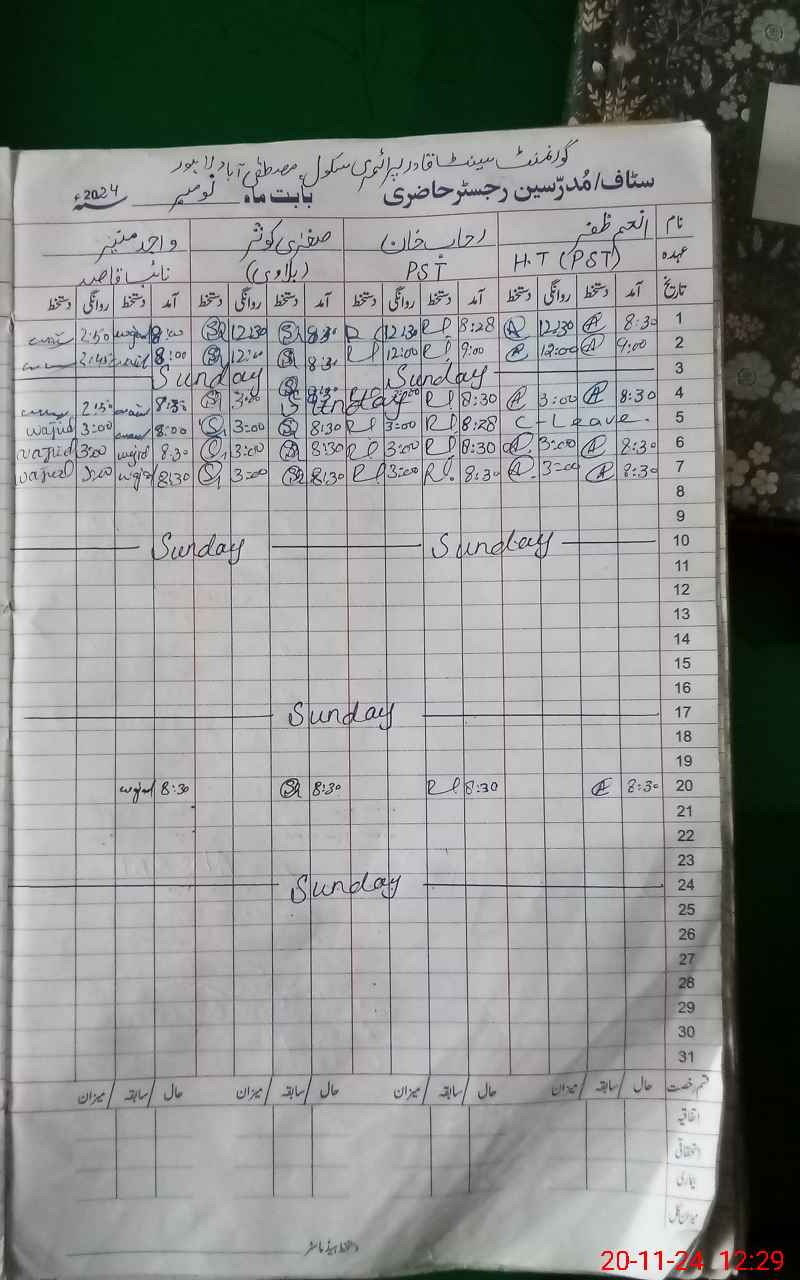 گورنمنٹ سینٹ قادر پرائمری سکول مصطفیٰ آباد لاہور
سٹاف/مُدرّسین رجسٹر حاضری بابت ماہ نومبر سنہ 2024ء
نام انعم ظفر رحاب خان صغریٰ کوثر واجد منیر
عہدہ H.T (PST) PST نائب قاصد
تاریخ آمد دستخط روانگی دستخط آمد دستخط روانگی دستخط آمد دستخط روانگی دستخط آمد دستخط روانگی دستخط
1 8:30 12:30 8:28 12:30 8:30 12:30 wajid 2:50
2 9:00 12:00 9:00 12:00 8:30 8:00
3 Sunday Sunday
4 8:30 3:00 8:30 Sunday 3:00 8:30
5 C-Leave. 8:28 3:00 8:30 3:00 8:00 3:00 wajid
6 8:30 3:00 8:30 3:00 8:30 3:00 8:30 wajid 3:00 wajid
7 8:30 3:00 8:30 3:00 8:30 3:00 8:30 wajid 3:00 wajid
8
9
10 Sunday Sunday
11
12
13
14
15
16
17 Sunday
18
19
20 8:30 8:30 8:30 8:30 wajid
21
22
23
24 Sunday
25
26
27
28
29
30
31
قسم رخصت حال / سابقہ / میزان حال / سابقہ / میزان حال / سابقہ / میزان حال / سابقہ / میزان
اتفاقیہ
استحقاقی
بیماری
میزان کل
دستخط ہیڈ ماسٹر
20-11-24 12:29